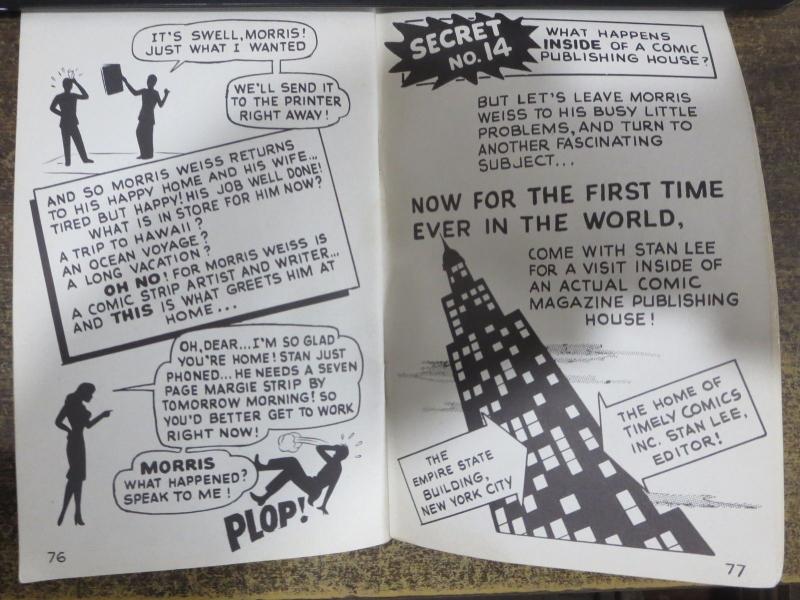 IT'S SWELL, MORRIS!
JUST WHAT I WANTED
WE'LL SEND IT
TO THE PRINTER
RIGHT AWAY!
AND SO MORRIS WEISS RETURNS
TO HIS HAPPY HOME AND HIS WIFE...
TIRED BUT HAPPY! HIS JOB WELL DONE!
WHAT IS IN STORE FOR HIM NOW?
A TRIP TO HAWAII?
AN OCEAN VOYAGE?
A LONG VACATION?
OH NO! FOR MORRIS WEISS IS
A COMIC STRIP ARTIST AND WRITER...
AND THIS IS WHAT GREETS HIM AT
HOME...
OH, DEAR...I'M SO GLAD
YOU'RE HOME! STAN JUST
PHONED... HE NEEDS A SEVEN
PAGE MARGIE STRIP BY
TOMORROW MORNING! SO
YOU'D BETTER GET TO WORK
RIGHT NOW!
MORRIS
WHAT HAPPENED?
SPEAK TO ME!
PLOP!
76
SECRET
NO. 14
WHAT HAPPENS
INSIDE OF A COMIC
PUBLISHING HOUSE?
BUT LET'S LEAVE MORRIS
WEISS TO HIS BUSY LITTLE
PROBLEMS, AND TURN TO
ANOTHER FASCINATING
SUBJECT...
NOW FOR THE FIRST TIME
EVER IN THE WORLD,
COME WITH STAN LEE
FOR A VISIT INSIDE OF
AN ACTUAL COMIC
MAGAZINE PUBLISHING
HOUSE!
THE
EMPIRE STATE
BUILDING,
NEW YORK CITY
THE HOME OF
TIMELY COMICS
INC. STAN LEE,
EDITOR!
77